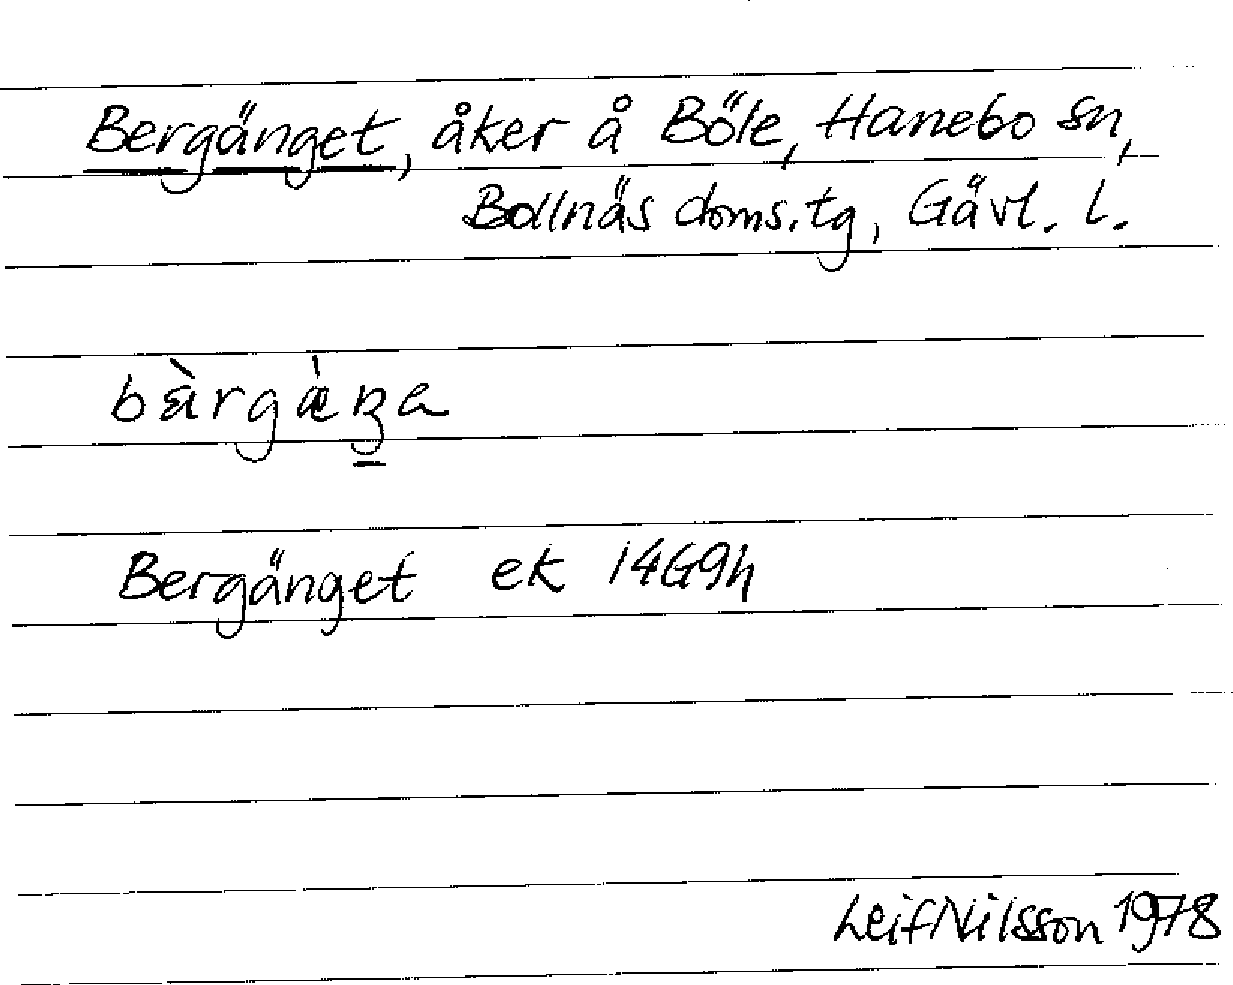 Bergänget, åker å Böle, Hanebo sn,
Bollnäs doms.tg, Gävl. l.
Bergänget ek 14G9h
Leif Nilsson 1978